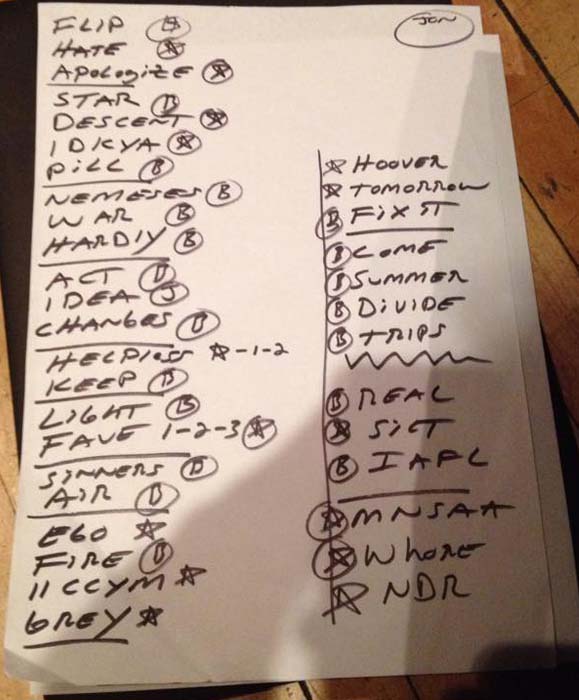 JON
FLIP ☆
HATE ☆
APOLOGIZE ☆
STAR B
DESCENT ☆
IDKYA ☆
PILL B
NEMESES B
WAR B
HARDLY B
ACT B
IDEA
CHANGES B
HELPLESS ☆-1-2
KEEP B
LIGHT B
FAVE 1-2-3 ☆
SINNERS B
AIR B
EGO ☆
FIRE B
IICCYM ☆
GREY ☆
☆ HOOVER
☆ TOMORROW
B FIX IT
B COME
B SUMMER
B DIVIDE
B TRIPS
B REAL
☆
B
☆ MNSAA
☆ WHORE
☆ NDR